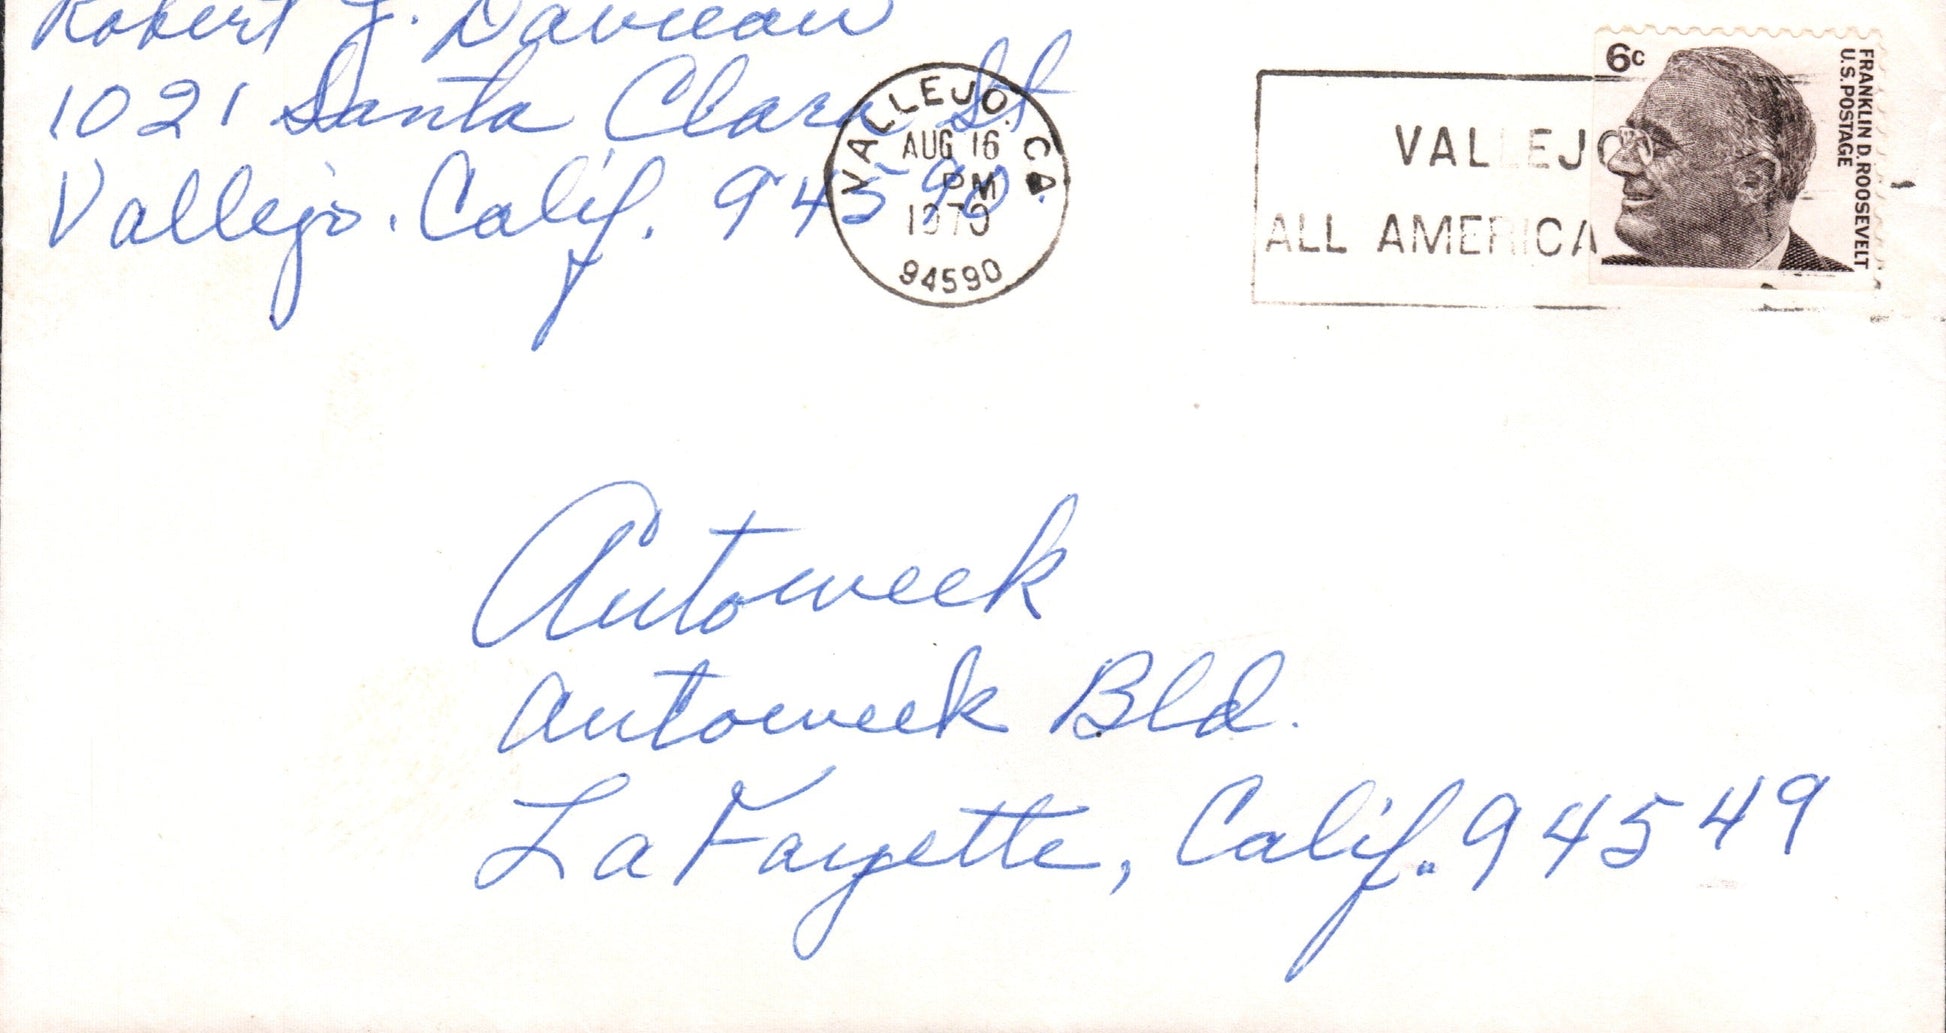 Robert J. Davieau
1021 Santa Clara St
Vallejo. Calif. 94590.
VALLEJO. CA
AUG 16
PM
1970
94590
VALLEJO
ALL AMERICA
6c
FRANKLIN D. ROOSEVELT
U.S. POSTAGE
Autoweek
Autoweek Bld.
LaFayette, Calif. 94549